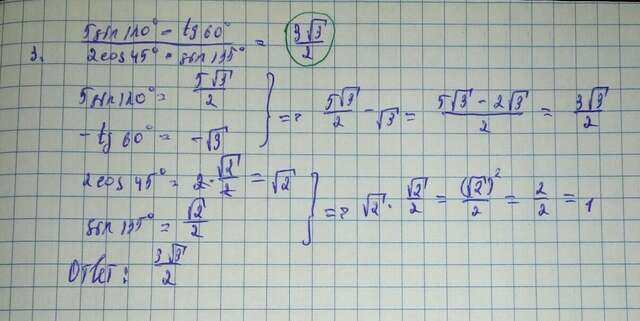 3. (5sin120° - tg60°)/(2cos45° · sin135°) = 3√3/2
5sin120° = 5√3/2
-tg60° = -√3
} => 5√3/2 - √3 = (5√3 - 2√3)/2 = 3√3/2
2cos45° = 2·√2/2 = √2
sin135° = √2/2
} => √2 · √2/2 = (√2)²/2 = 2/2 = 1
Ответ: 3√3/2